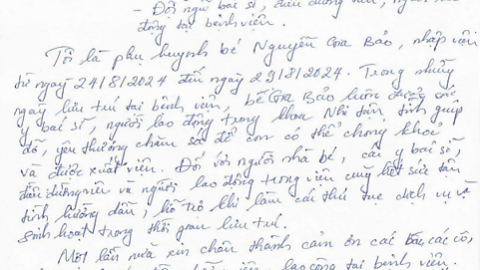 - Đội ngũ bác sĩ, điều dưỡng viên, người lao
động tại bệnh viện.
Tôi là phụ huynh bé Nguyễn Gia Bảo, nhập viện
từ ngày 24/8/2024 đến ngày 29/8/2024. Trong những
ngày lưu trú tại bệnh viện, bé Gia Bảo luôn được các
y bác sĩ, người lao động trong khoa Nhi tận tình giúp
đỡ, yêu thương chăm sóc để con có thể chóng khoẻ
và được xuất viện. Đối với người nhà bé, các y bác sĩ,
điều dưỡng viên và người lao động trong viện cũng hết sức tận
tình hướng dẫn, hỗ trợ khi làm các thủ tục dịch vụ và
sinh hoạt trong thời gian lưu trú.
Một lần nữa xin chân thành cảm ơn các bác, các cô,
lao công tại bệnh viện.